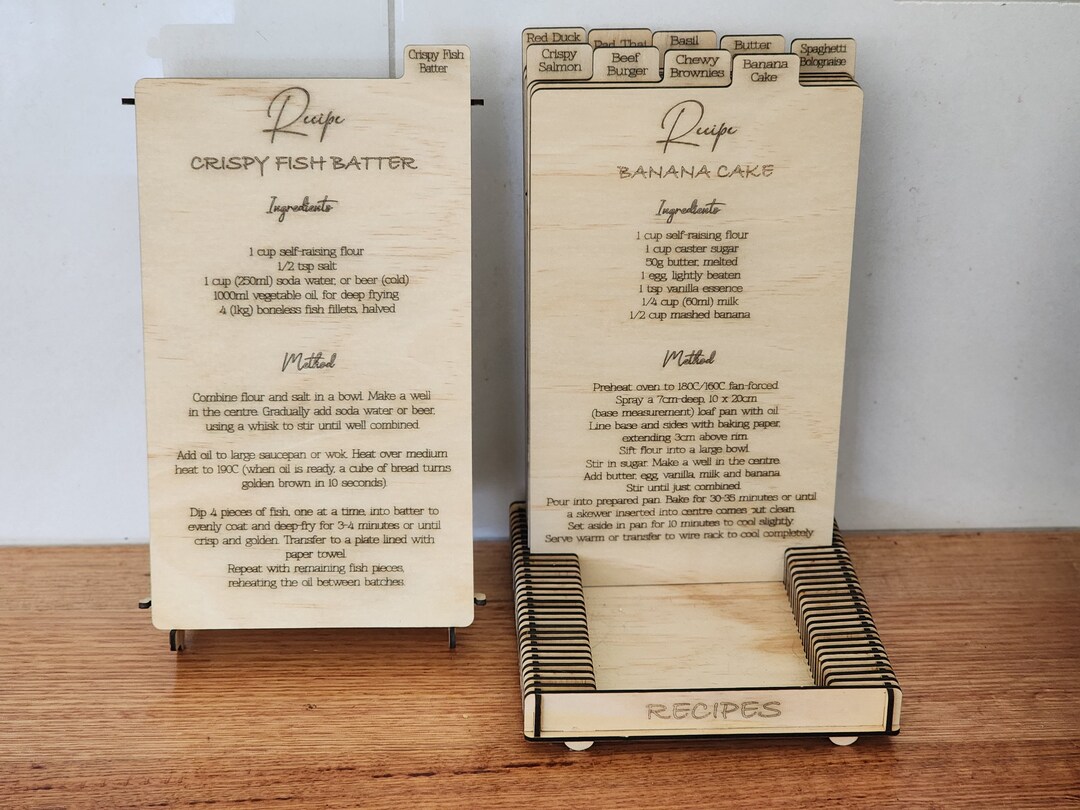 Crispy Fish
Batter
Recipe
CRISPY FISH BATTER
Ingredients
1 cup self-raising flour
1/2 tsp salt
1 cup (250ml) soda water, or beer (cold)
1000ml vegetable oil, for deep frying
4 (1kg) boneless fish fillets, halved
Method
Combine flour and salt in a bowl. Make a well
in the centre. Gradually add soda water or beer,
using a whisk to stir until well combined.
Add oil to large saucepan or wok. Heat over medium
heat to 190C (when oil is ready, a cube of bread turns
golden brown in 10 seconds).
Dip 4 pieces of fish, one at a time, into batter to
evenly coat and deep-fry for 3-4 minutes or until
crisp and golden. Transfer to a plate lined with
paper towel.
Repeat with remaining fish pieces,
reheating the oil between batches.
Red Duck
Pad Thai
Basil
Butter
Spaghetti
Bolognaise
Crispy
Salmon
Beef
Burger
Chewy
Brownies
Banana
Cake
Recipe
BANANA CAKE
Ingredients
1 cup self-raising flour
1 cup caster sugar
50g butter, melted
1 egg, lightly beaten
1 tsp vanilla essence
1/4 cup (60ml) milk
1/2 cup mashed banana
Method
Preheat oven to 180C/160C fan-forced
Spray a 7cm-deep, 10 x 20cm
(base measurement) loaf pan with oil
Line base and sides with baking paper,
extending 3cm above rim.
Sift flour into a large bowl.
Stir in sugar. Make a well in the centre.
Add butter, egg, vanilla, milk and banana.
Stir until just combined.
Pour into prepared pan. Bake for 30-35 minutes or until
a skewer inserted into centre comes out clean.
Set aside in pan for 10 minutes to cool slightly.
Serve warm or transfer to wire rack to cool completely
RECIPES